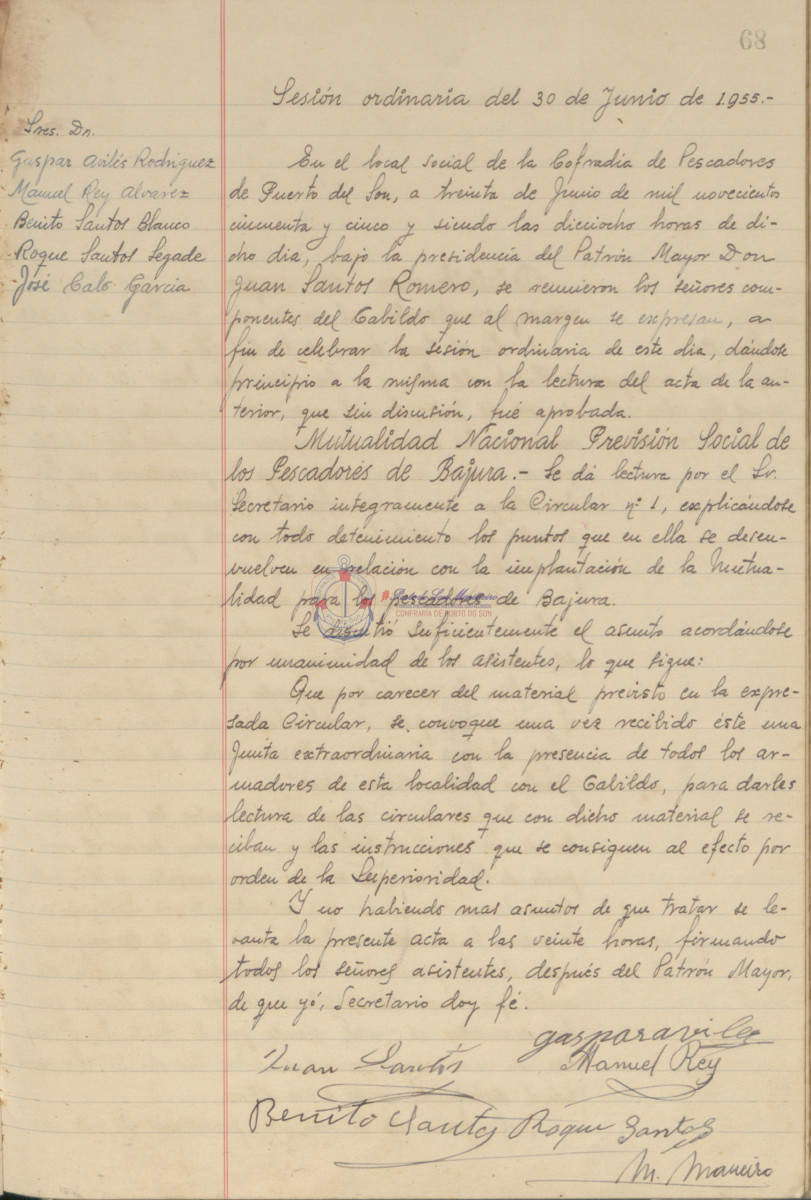 68
Sesión ordinaria del 30 de Junio de 1.955.-
Sres. Dn.
Gaspar Avilés Rodriguez
Manuel Rey Alvarez
Benito Santos Blanco
-Roque Santos Segade
-José Calo Garcia
En el local social de la Cofradia de Pescadores
de Puerto del Son, a treinta de Junio de mil novecientos
cincuenta y cinco y siendo las dieciocho horas de di-
cho dia, bajo la presidencia del Patrón Mayor Don
Juan Santos Romero, se reunieron los señores com-
ponentes del Cabildo que al margen se expresan, a
fin de celebrar la sesión ordinaria de este dia, dándose
principio a la misma con la lectura del acta de la an-
terior, que sin discusión, fué aprobada.
Mutualidad Nacional Previsión Social de
los Pescadores de Bajura.- Se dá lectura por el Sr.
Secretario integramente a la Circular nº 1, explicándose
con todo detenimiento los puntos que en ella se desen-
vuelven en relación con la implantación de la Mutua-
lidad para los pescadores de Bajura.
CONFRARÍA DE PORTO DO SON
Se discutió suficientemente el asunto acordándose
por unanimidad de los asistentes, lo que sigue:
Que por carecer del material previsto en la expre-
sada Circular, se convoque una vez recibido éste una
Junta extraordinaria con la presencia de todos los ar-
madores de esta localidad con el Cabildo, para darles
lectura de las circulares que con dicho material se re-
ciban y las instrucciones que se consiguen al efecto por
orden de la Superioridad.
Y no habiendo mas asuntos de que tratar se le-
vanta la presente acta a las veinte horas, firmando
todos los señores asistentes, después del Patrón Mayor,
de que yó, Secretario doy fé.
gaspar aviles
Juan Santos
Manuel Rey
Benito Santos Roque Santos
M. Maneiro